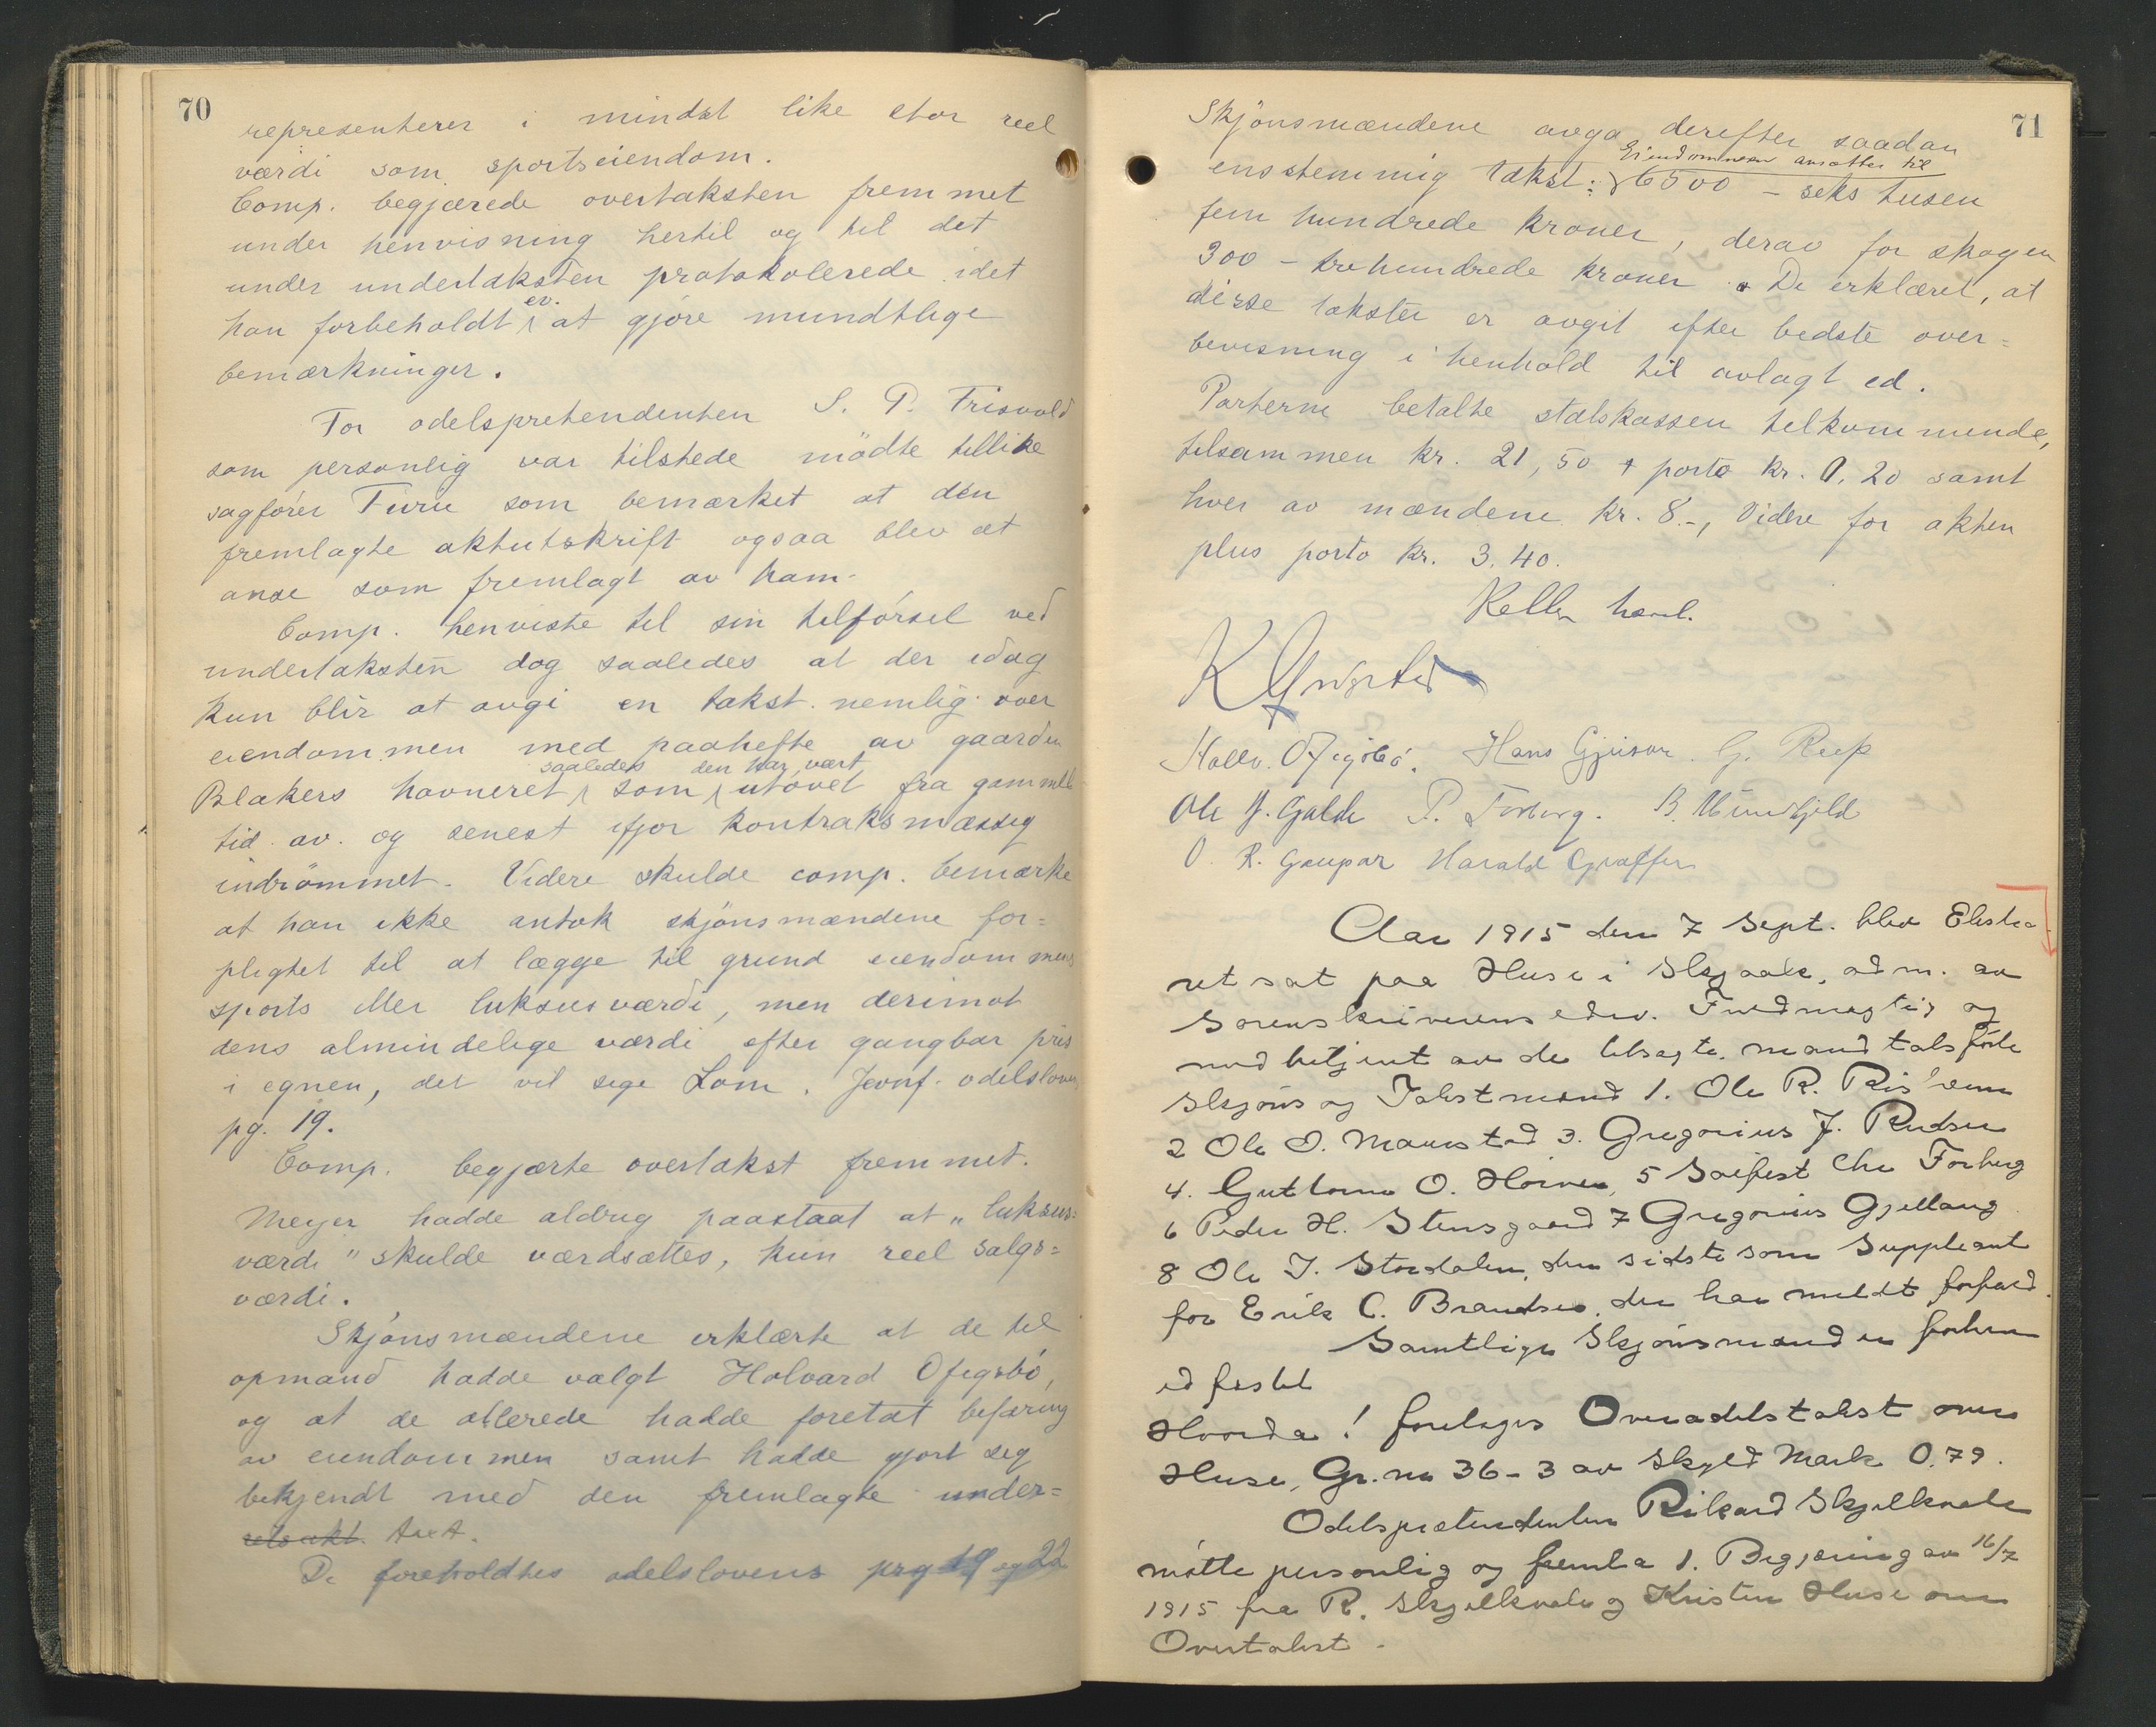 70
representerer i mindst like stor reel
værdi som sportseiendom.
Comp. begjærede overtaksten fremmet
under henvisning hertil og til det
under undertaksten protokolerede idet
han forbeholdt ev. at gjøre mundtlige
bemærkninger.
For odelspretendenten S. P. Frisvold
som personlig var tilstede mödte tillike
sagförer Furu som bemærket at den
fremlagte aktutskrift ogsaa blev at
anse som fremlagt av ham.
Comp. henviste til sin tilförsel ved
undertaksten dog saaledes at der idag
kun blir at avgi en takst nemlig over
eiendommen med paahefte av gaarden
saaledes den har vært
Blakers havneret som utövet fra gammel
tid av og senest ifjor kontraksmæssig
indrömmet. Videre skulde comp. bemærke
at han ikke antok skjönsmændene for=
pligtet til at lægge til grund eiendommens
sports eller luksusværdi, men derimot
dens almindelige værdi efter gangbar pris
i egnen, det vil sige Lom. Jvnf. odelsloven
pg. 19.
Comp. begjærte overtakst fremmet.
Meyer hadde aldrig paastaat at „luksus=
værdi" skulde værdsættes, kun reel salgs=
værdi.
Skjönsmændene erklærte at de til
opmand hadde valgt Halvard Ofigsbö,
og at de allerede hadde foretat befaring
av eiendommen samt hadde gjort sig
bekjendt med den fremlagte under=
takst.
De foreholdtes odelslovens prg 19 og 22
71
Skjönsmændene avga derefter saadan
Eiendommen ansættes til
enstemmig takst: 6500 – seks tusen
fem hundrede kroner, derav for skogen
300 – trehundrede kroner. De erklæret, at
disse takster er avgit efter bedste over=
bevisning i henhold til avlagt ed.
Parterne betalte statskassen tilkommende,
tilsammen kr. 21,50 + porto kr. 0,20 samt
hver av mændene kr. 8.-, Videre for akten
plus porto kr. 3.40.
Keller
K
Hallv. Ofigsbö. Hans Gjeisar. G. Reep
Ole J. Galde P. Forberg.
O. R. Gaupar Harald Graffer
Aar 1915 den 7 Sept. blev Ekstra
ret sat paa Huse i Skjaak, adm. av
Sorenskriverens edsv. Fuldmægtig og
med betjent av de tilsagte, mandtalsførte
Skjøns og Takstmænd 1. Ole R. Ris'em
2 Ole O. Maurstad 3. Gregorius J. Rudsen
4. Guttorm O. Horven, 5 Seifest Chr Forberg
6 Peder H. Stensgaard 7 Gregorius Gjellang
8 Ole J. Stordalen, den sidste som Suppleant
for Erik C. Brandsar, der har meldt forfald.
Samtlige Skjønsmænd er forhen
edfæstet
Hvorda! foretages Overodelstakst over
Huse, Gr. no 36-3 av Skyld Mark 0.79.
Odelsprætendenten Rikard Skjelkvale
møtte personlig og fremla 1. Begjæring av 16/7
1915 fra R. Skjelkvale og Kristen Huse om
Overtakst.